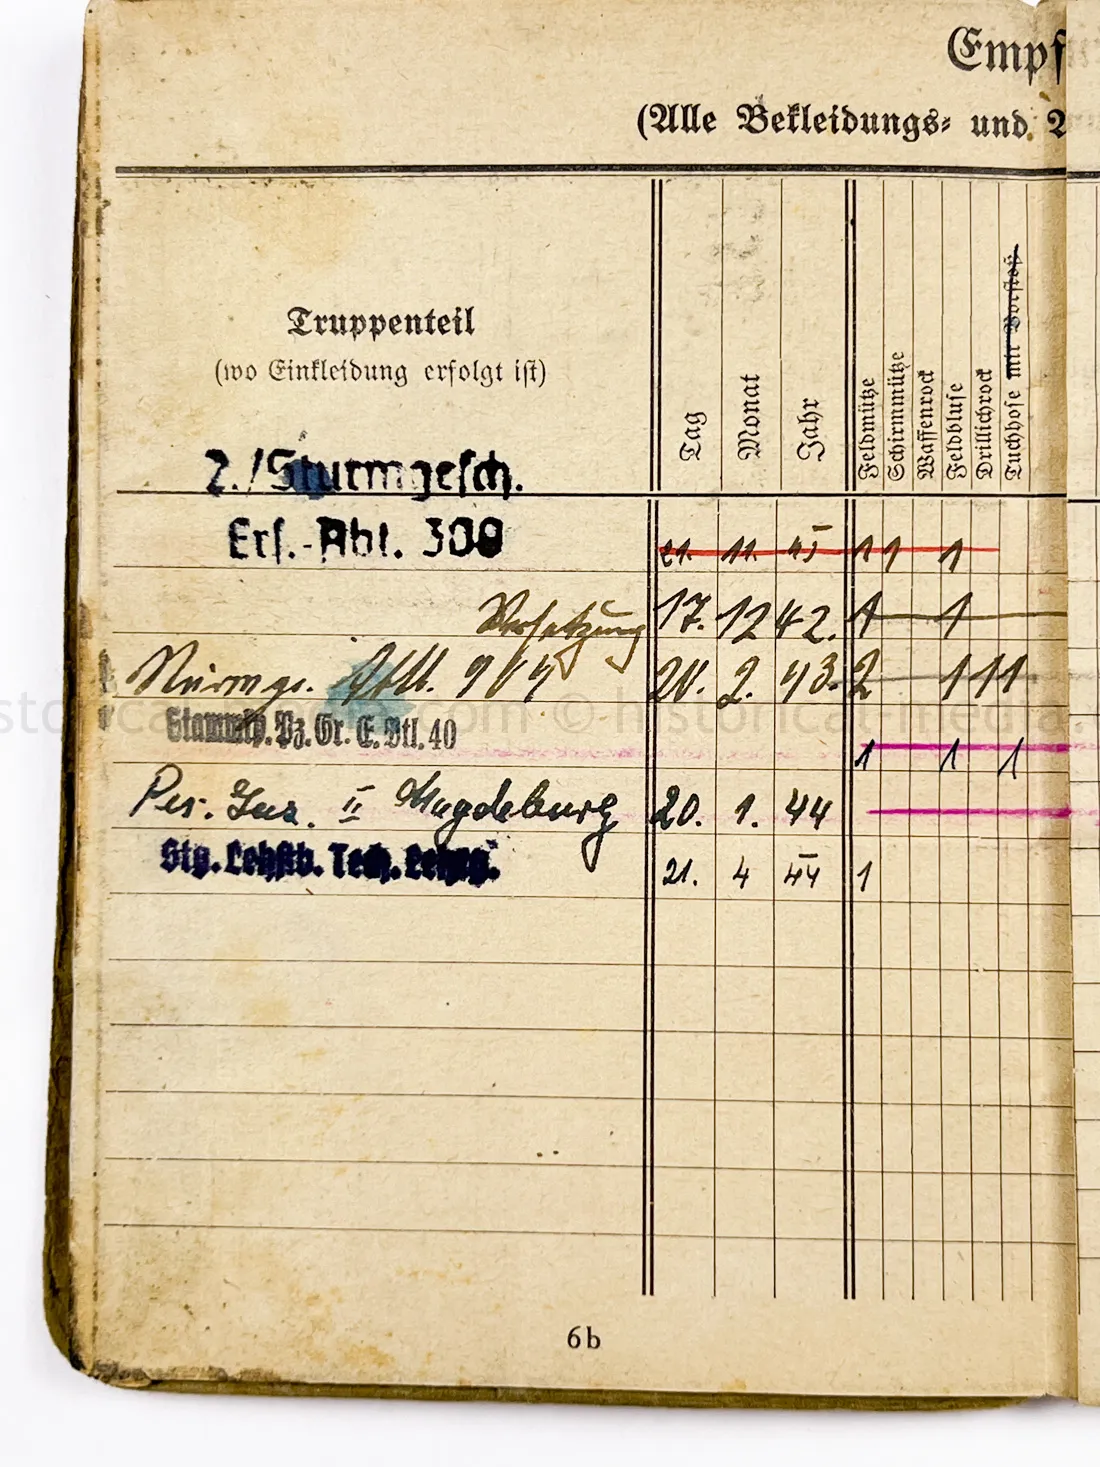 Empf
(Alle Bekleidungs- und A
Truppenteil
(wo Einkleidung erfolgt ist)
Tag
Monat
Jahr
Feldmütze
Schirmmütze
Waffenrock
Feldbluse
Drillichrock
Tuchhose mit Vorstoß
2./Sturmgesch.
Ers.-Abt. 300 21. 11. 1 1 1
Versetzung 17. 12 42. 1 1
20. 2. 43. 2 1 1 1
Stammkp. Pz. Gr. E. Btl. 40 1 1 1
Res. Laz. II Magdeburg 20. 1. 44
Stg. Lehrb. Tech. Lehrg. 21. 4 44 1
historical-media.com © historical-media
6b